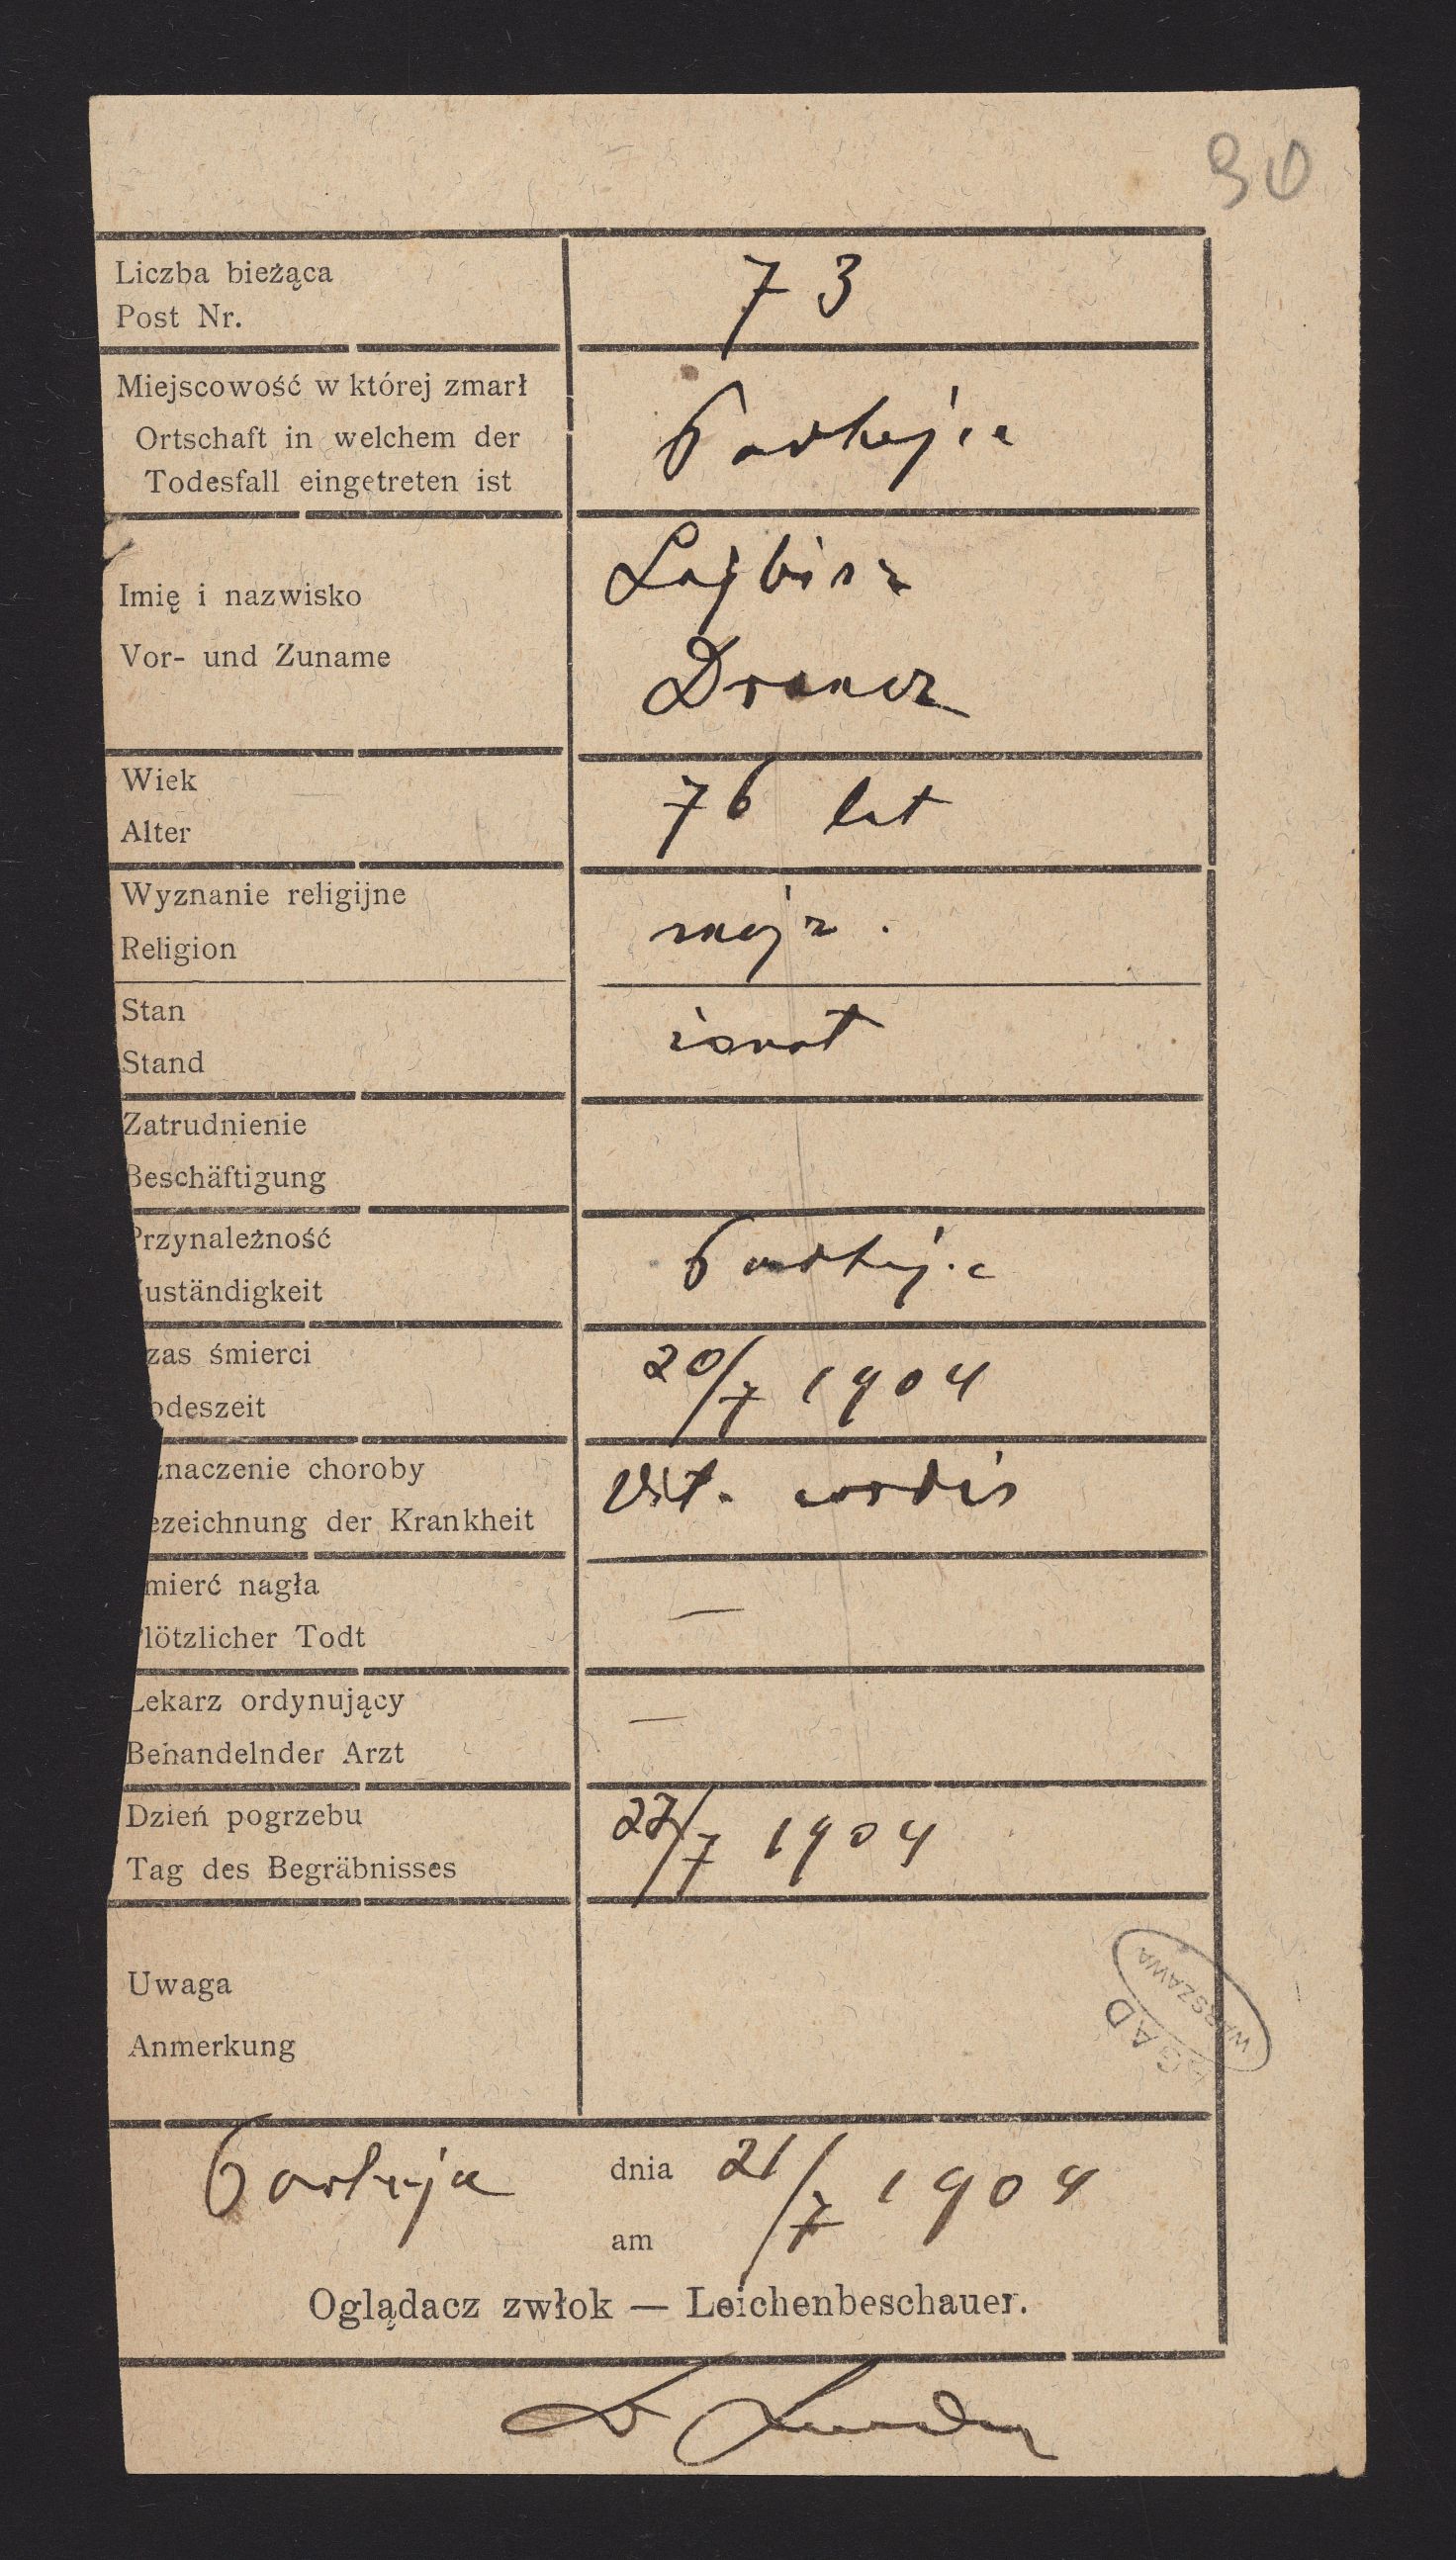 30
Liczba bieżąca
Post Nr.
73
Miejscowość w której zmarł
Ortschaft in welchem der
Todesfall eingetreten ist
Podhajce
Imię i nazwisko
Vor- und Zuname
Lajbisz
Wiek
Alter
76 lat
Wyznanie religijne
Religion
mojż.
Stan
Stand
żonat
Zatrudnienie
Beschäftigung
Przynależność
uständigkeit
Podhajce
zas śmierci
odeszeit
20/7 1904
znaczenie choroby
ezeichnung der Krankheit
Vit. cordis
mierć nagła
lötzlicher Todt
—
Lekarz ordynujący
Behandelnder Arzt
—
Dzień pogrzebu
Tag des Begräbnisses
22/7 1904
Uwaga
Anmerkung
AGAD
WARSZAWA
Podhajce dnia 21/7 1904
am
Oglądacz zwłok — Leichenbeschauer.